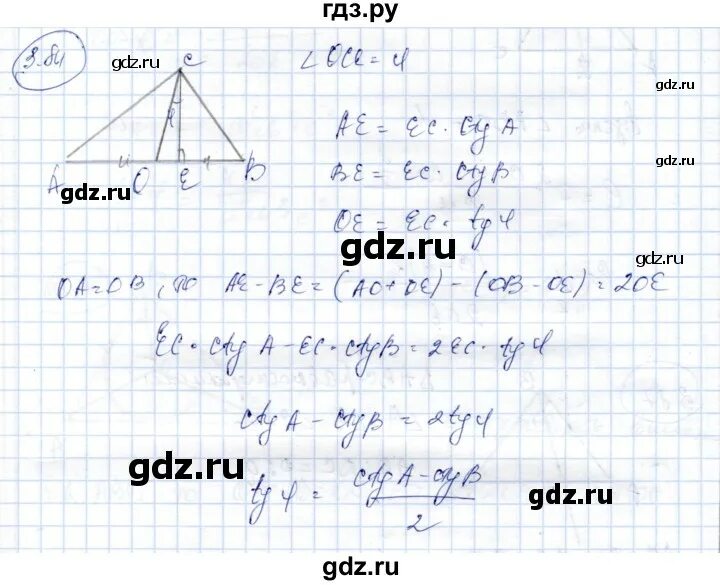 гдз.ру
3.84
gdz.ru
C
∠OCE = φ
gdz.ru
AE = EC · ctg A
gdz.ru
A O E B
BE = EC · ctg B
gdz.ru
OE = EC · tg φ
gdz.ru
OA = OB, то AE - BE = (AO + OE) - (OB - OE) = 2OE
EC · ctg A - EC · ctg B = 2EC · tg φ
ctg A - ctg B = 2tg φ
gdz.ru
tg φ = ctg A - ctg B / 2
gdz.ru
gdz.ru
gdz.ru